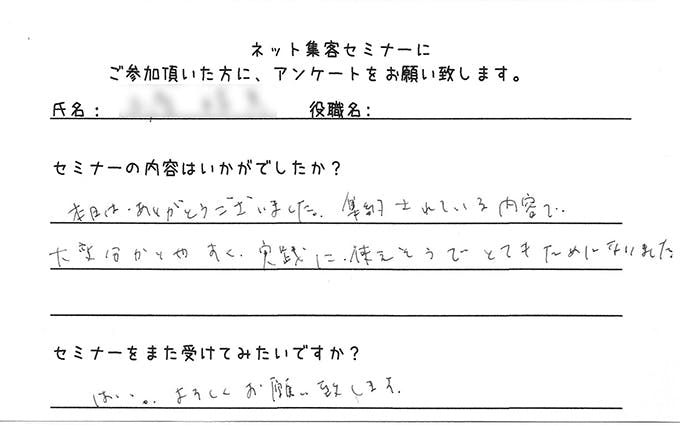 ネット集客セミナーに
ご参加頂いた方に、アンケートをお願い致します。
氏名： 役職名：
セミナーの内容はいかがでしたか？
本日は、ありがとうございました。集約されている内容で、
大変分かりやすく、実践に、使えそうでとてもためになりました
セミナーをまた受けてみたいですか？
はい。よろしくお願い致します。